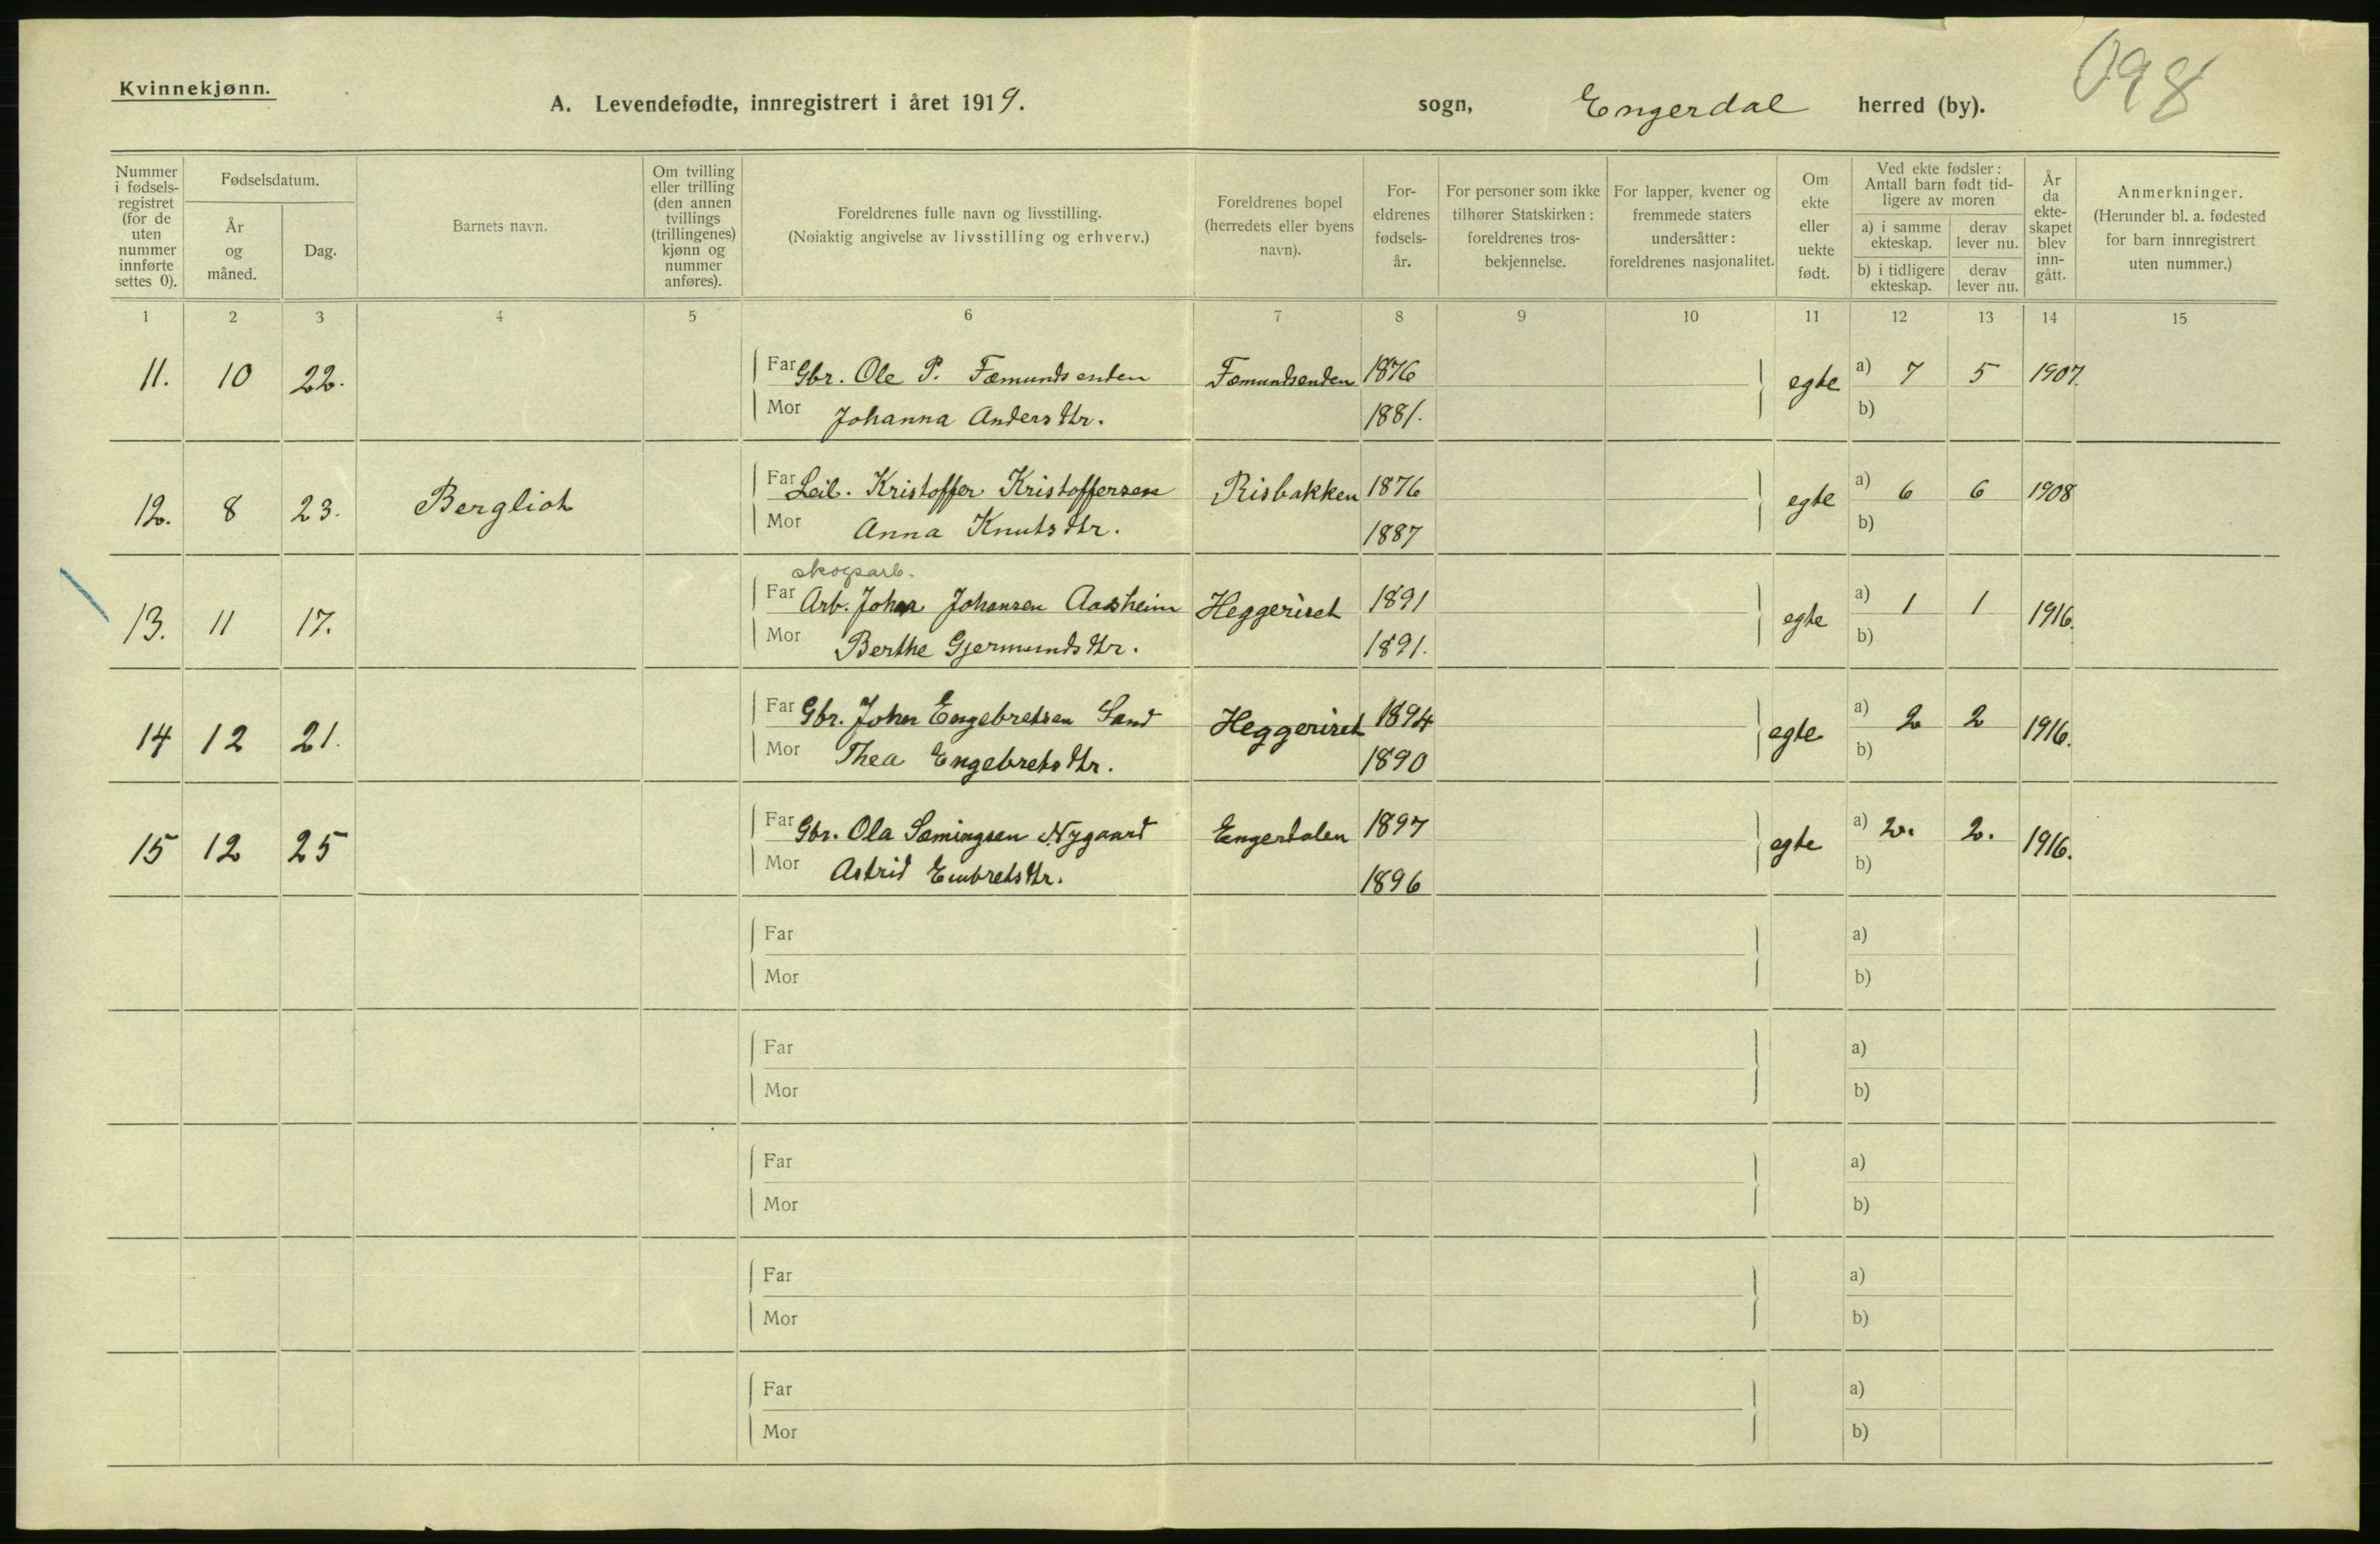 Kvinnekjønn.
A. Levendefødte, innregistrert i året 1919.
sogn, Engerdal herred (by).
098
Nummer i fødsels-registret (for de uten nummer innførte settes 0).
Fødselsdatum.
År og måned.
Dag.
Barnets navn.
Om tvilling eller trilling (den annen tvillings (trillingenes) kjønn og nummer anføres).
Foreldrenes fulle navn og livsstilling.
(Nøiaktig angivelse av livsstilling og erhverv.)
Foreldrenes bopel (herredets eller byens navn).
For-eldrenes fødsels-år.
For personer som ikke tilhører Statskirken: foreldrenes tros-bekjennelse.
For lapper, kvener og fremmede staters undersåtter: foreldrenes nasjonalitet.
Om ekte eller uekte født.
Ved ekte fødsler: Antall barn født tid-ligere av moren
a) i samme ekteskap.
derav lever nu.
b) i tidligere ekteskap.
derav lever nu.
År da ekte-skapet blev inn-gått.
Anmerkninger.
(Herunder bl. a. fødested for barn innregistrert uten nummer.)
1 2 3 4 5 6 7 8 9 10 11 12 13 14 15
11. 10 22. Far Gbr. Ole P. Fæmundsenden Fæmundsenden 1876 egte a) 7 5 1907.
Mor Johanna Andersdtr. 1881. b)
12. 8 23. Bergliot Far Leil. Kristoffer Kristoffersen Risbakken 1876 egte a) 6 6 1908
Mor Anna Knutsdtr. 1887 b)
skogsarb.
13. 11 17. Far Arb. Johan Johansen Aasheim Heggeriset 1891 egte a) 1 1 1916.
Mor Berthe Gjermundsdtr. 1891. b)
14 12 21. Far Gbr. Johan Engebretsen Sand Heggeriset 1894 egte a) 2 2 1916.
Mor Thea Engebretsdtr. 1890 b)
15 12 25 Far Gbr. Ola Sæmingsen Nygaard Engerdalen 1897 egte a) 2. 2. 1916.
Mor Astrid Embretsdtr. 1896 b)
Far a)
Mor b)
Far a)
Mor b)
Far a)
Mor b)
Far a)
Mor b)
Far a)
Mor b)